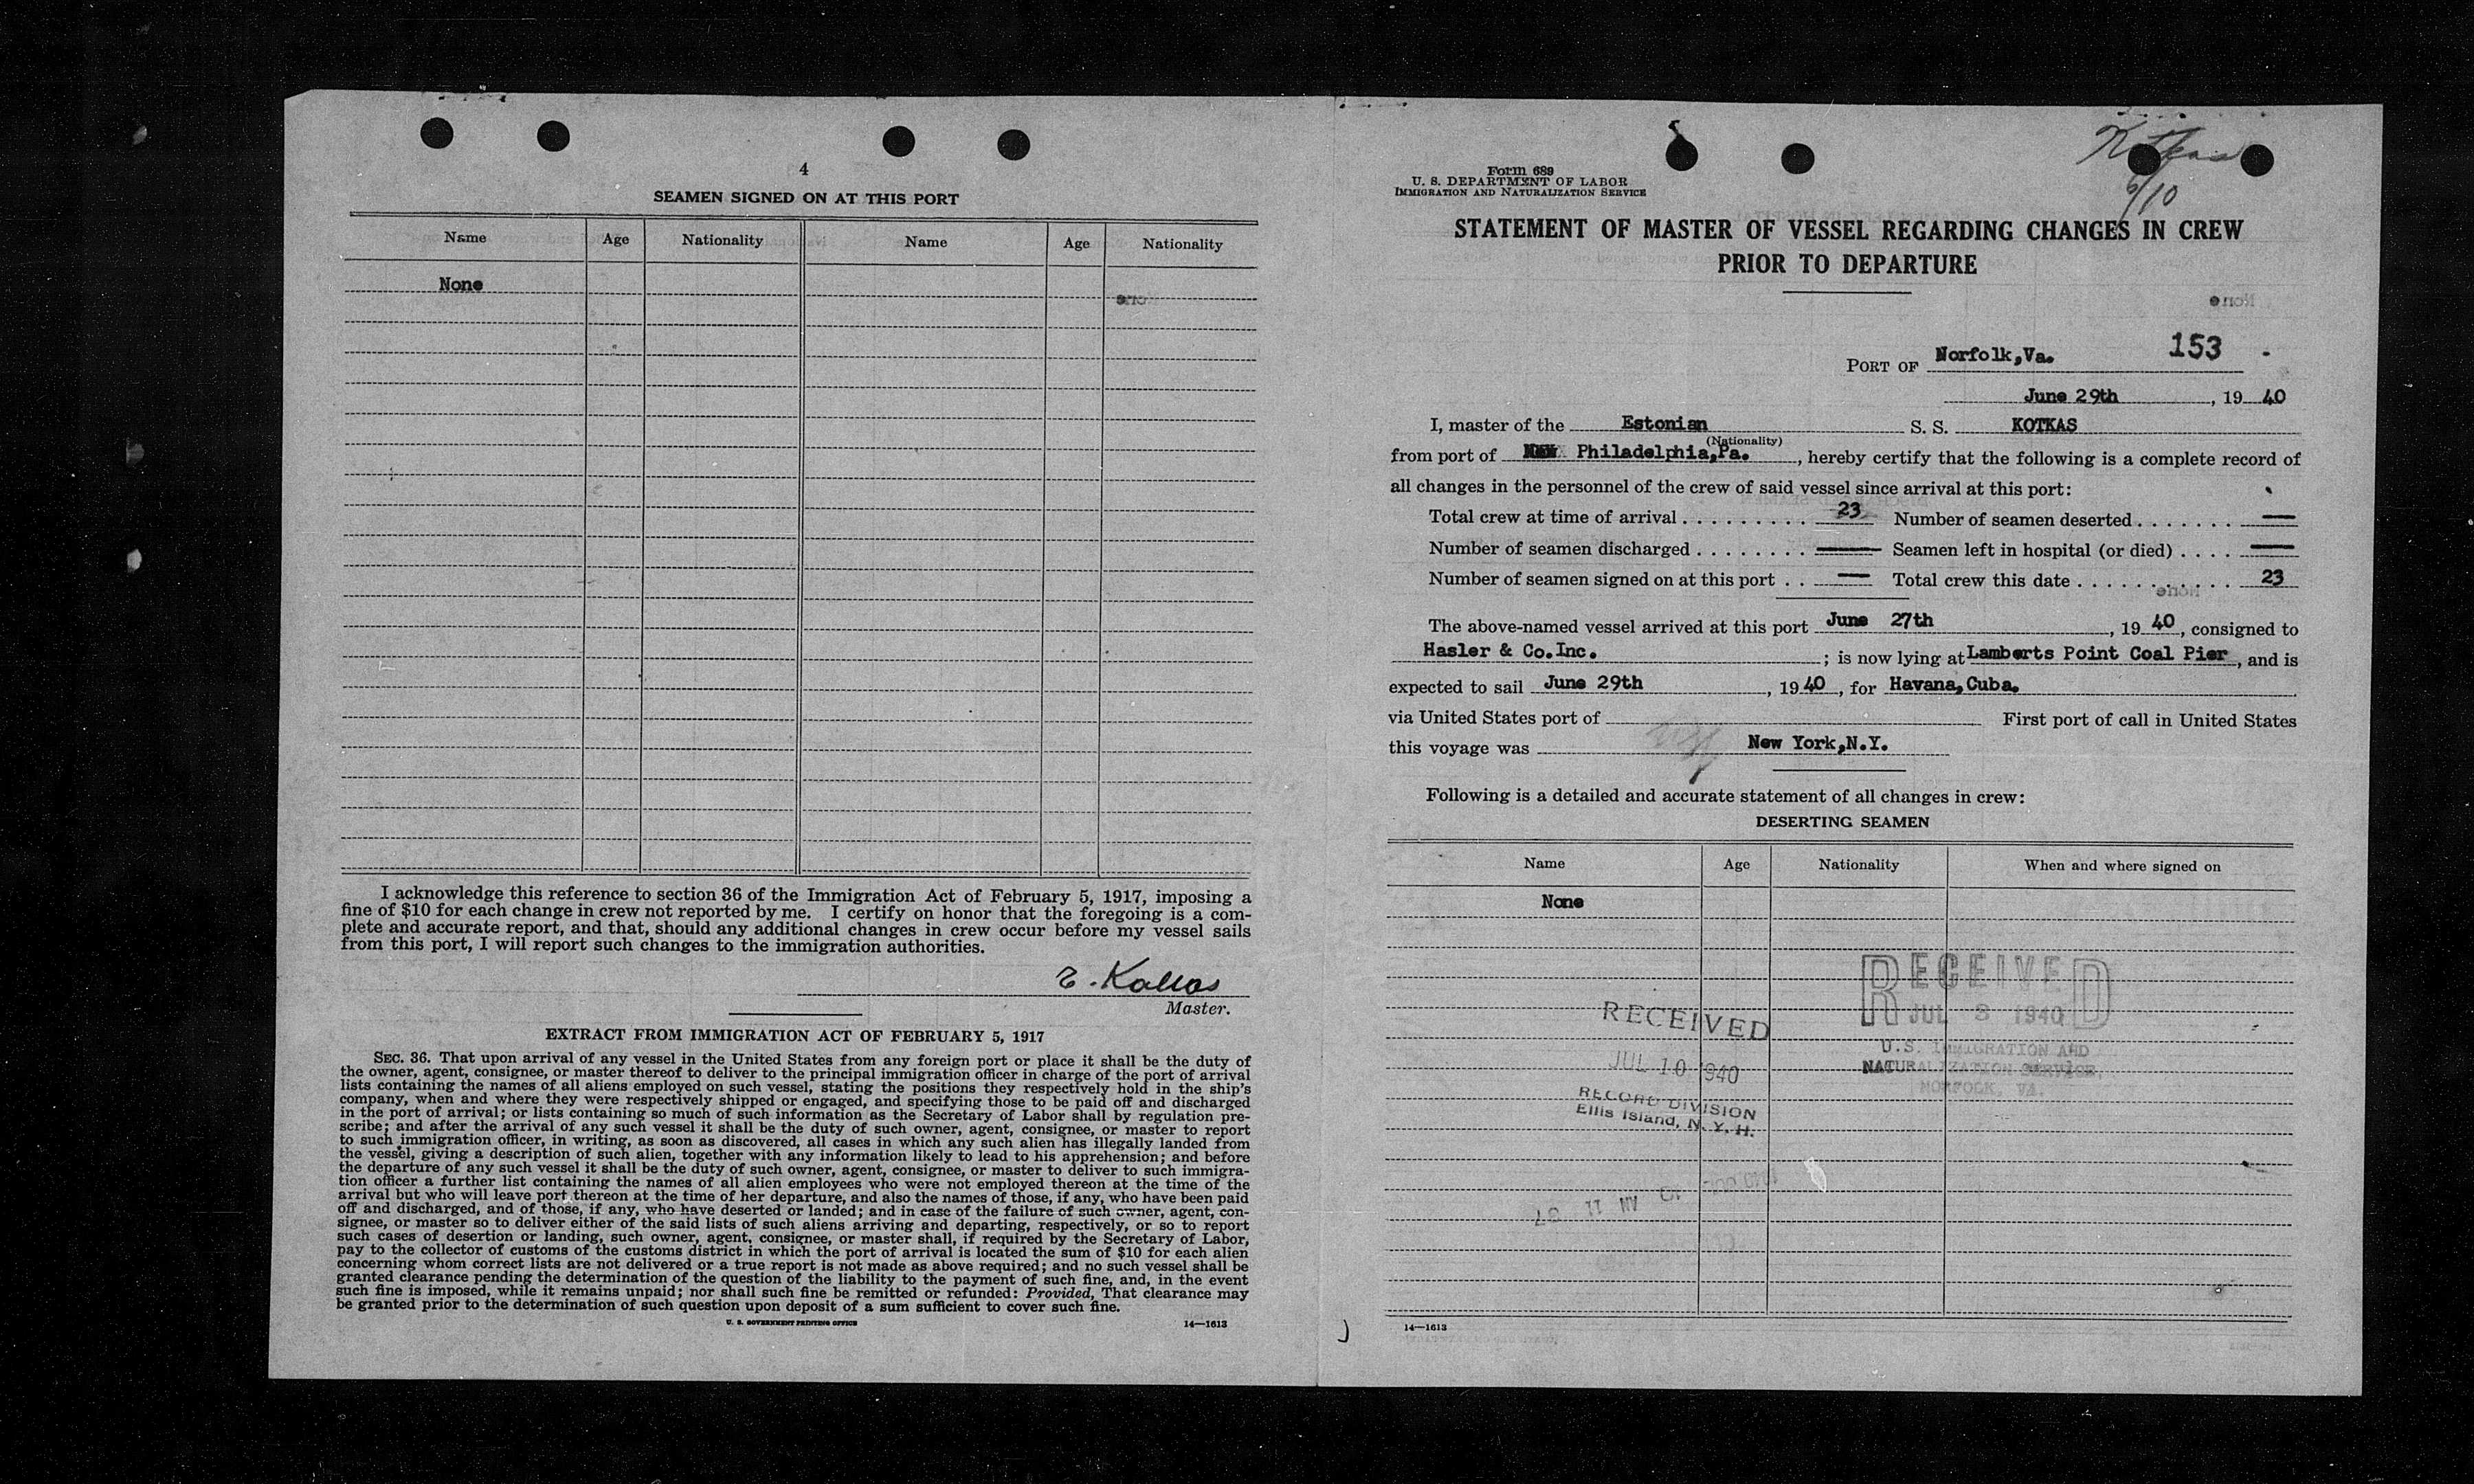 4
SEAMEN SIGNED ON AT THIS PORT
Name Age Nationality Name Age Nationality
None
I acknowledge this reference to section 36 of the Immigration Act of February 5, 1917, imposing a
fine of $10 for each change in crew not reported by me. I certify on honor that the foregoing is a com-
plete and accurate report, and that, should any additional changes in crew occur before my vessel sails
from this port, I will report such changes to the immigration authorities.
E. Kallas
Master.
EXTRACT FROM IMMIGRATION ACT OF FEBRUARY 5, 1917
SEC. 36. That upon arrival of any vessel in the United States from any foreign port or place it shall be the duty of
the owner, agent, consignee, or master thereof to deliver to the principal immigration officer in charge of the port of arrival
lists containing the names of all aliens employed on such vessel, stating the positions they respectively hold in the ship's
company, when and where they were respectively shipped or engaged, and specifying those to be paid off and discharged
in the port of arrival; or lists containing so much of such information as the Secretary of Labor shall by regulation pre-
scribe; and after the arrival of any such vessel it shall be the duty of such owner, agent, consignee, or master to report
to such immigration officer, in writing, as soon as discovered, all cases in which any such alien has illegally landed from
the vessel, giving a description of such alien, together with any information likely to lead to his apprehension; and before
the departure of any such vessel it shall be the duty of such owner, agent, consignee, or master to deliver to such immigra-
tion officer a further list containing the names of all alien employees who were not employed thereon at the time of the
arrival but who will leave port thereon at the time of her departure, and also the names of those, if any, who have been paid
off and discharged, and of those, if any, who have deserted or landed; and in case of the failure of such owner, agent, con-
signee, or master so to deliver either of the said lists of such aliens arriving and departing, respectively, or so to report
such cases of desertion or landing, such owner, agent, consignee, or master shall, if required by the Secretary of Labor,
pay to the collector of customs of the customs district in which the port of arrival is located the sum of $10 for each alien
concerning whom correct lists are not delivered or a true report is not made as above required; and no such vessel shall be
granted clearance pending the determination of the question of the liability to the payment of such fine, and, in the event
such fine is imposed, while it remains unpaid; nor shall such fine be remitted or refunded: Provided, That clearance may
be granted prior to the determination of such question upon deposit of a sum sufficient to cover such fine.
U. S. GOVERNMENT PRINTING OFFICE 14—1613
Kotkas
6/10
Form 689
U. S. DEPARTMENT OF LABOR
IMMIGRATION AND NATURALIZATION SERVICE
STATEMENT OF MASTER OF VESSEL REGARDING CHANGES IN CREW
PRIOR TO DEPARTURE
PORT OF Norfolk,Va. 153
June 29th, 19 40
I, master of the Estonian S. S. KOTKAS
(Nationality)
from port of Philadelphia,Pa., hereby certify that the following is a complete record of
all changes in the personnel of the crew of said vessel since arrival at this port:
Total crew at time of arrival . . . . . . . . . 23 Number of seamen deserted . . . . . . . —
Number of seamen discharged . . . . . . . . — Seamen left in hospital (or died) . . . . —
Number of seamen signed on at this port . . — Total crew this date . . . . . . . . . . . 23
The above-named vessel arrived at this port June 27th, 19 40, consigned to
Hasler & Co.Inc.; is now lying at Lamberts Point Coal Pier, and is
expected to sail June 29th, 19 40, for Havana,Cuba.
via United States port of First port of call in United States
this voyage was New York,N.Y.
Following is a detailed and accurate statement of all changes in crew:
DESERTING SEAMEN
Name Age Nationality When and where signed on
None
RECEIVED
JUL 3 1940
U.S. IMMIGRATION AND
NATURALIZATION SERVICE,
NORFOLK, VA.
RECEIVED
JUL 10 1940
RECORD DIVISION
Ellis Island, N. Y. H.
14—1613